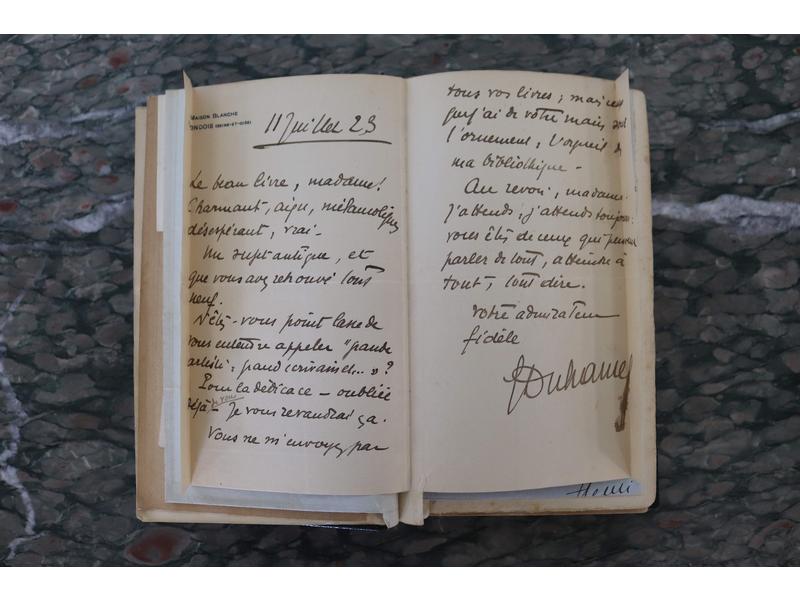 MAISON BLANCHE
ONDOIS (SEINE-ET-OISE)
11 Juillet 23
Le beau livre, madame!
Charmant, aigu, mélancolique
désespérant, vrai -
Un sujet antique, et
que vous avez retrouvé tout
neuf.
N'êtes-vous point lasse de
vous entendre appeler "grande
artiste, grand écrivain etc... " ?
Pour la dédicace - oubliée
déjà - je vous revaudrai ça.
Vous ne m'envoyez pas
tous vos livres ; mais ce
que j'ai de votre main, est
l'ornement, l'orgueil de
ma bibliothèque -
Au revoir, madame.
J'attends, j'attends toujours
vous êtes de ceux qui peuvent
parler de tout, atteindre à
tout, tout dire.
votre admirateur
fidèle
GDuhamel